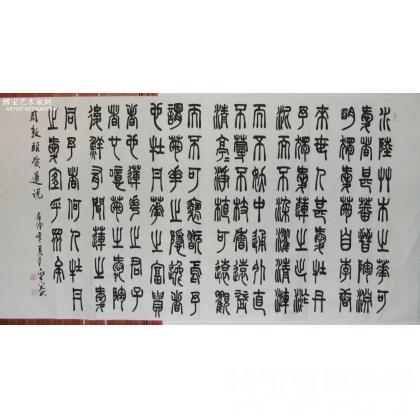 博宝艺术家网
ARTIST.ARTXUN.COM
水陸艸木之華可
愛者甚蕃晉陶淵
明獨愛菊自李唐
來世人甚愛牡丹
予獨愛蓮之出淤
泥而不染濯清漣
而不妖中通外直
不蔓不枝香遠益
清亭亭淨植可遠觀
而不可褻玩焉予
謂菊華之隱逸者
也牡丹華之富貴
者也蓮華之君子
者也噫菊之愛陶
後鮮有聞蓮之愛
同予者何人牡丹
之愛宜乎眾矣
周敦頤愛蓮說